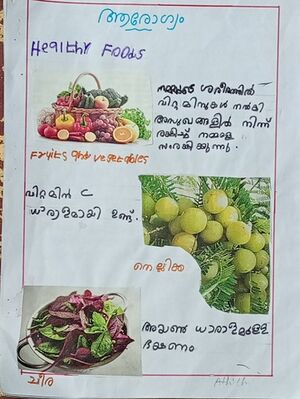 ആരോഗ്യം
Healthy Foods
നമ്മുടെ ശരീരത്തിൽ
വിറ്റാമിനുകൾ നൽകി
അസുഖങ്ങളിൽ നിന്ന്
രക്ഷിച്ച് നമ്മളെ
സംരക്ഷിക്കുന്നു.
Fruits and vegetables
വിറ്റമിൻ C
ധാരാളമായി ഉണ്ട്.
നെല്ലിക്ക
അയൺ ധാരാളമുള്ള
ഭക്ഷണം
ചീര